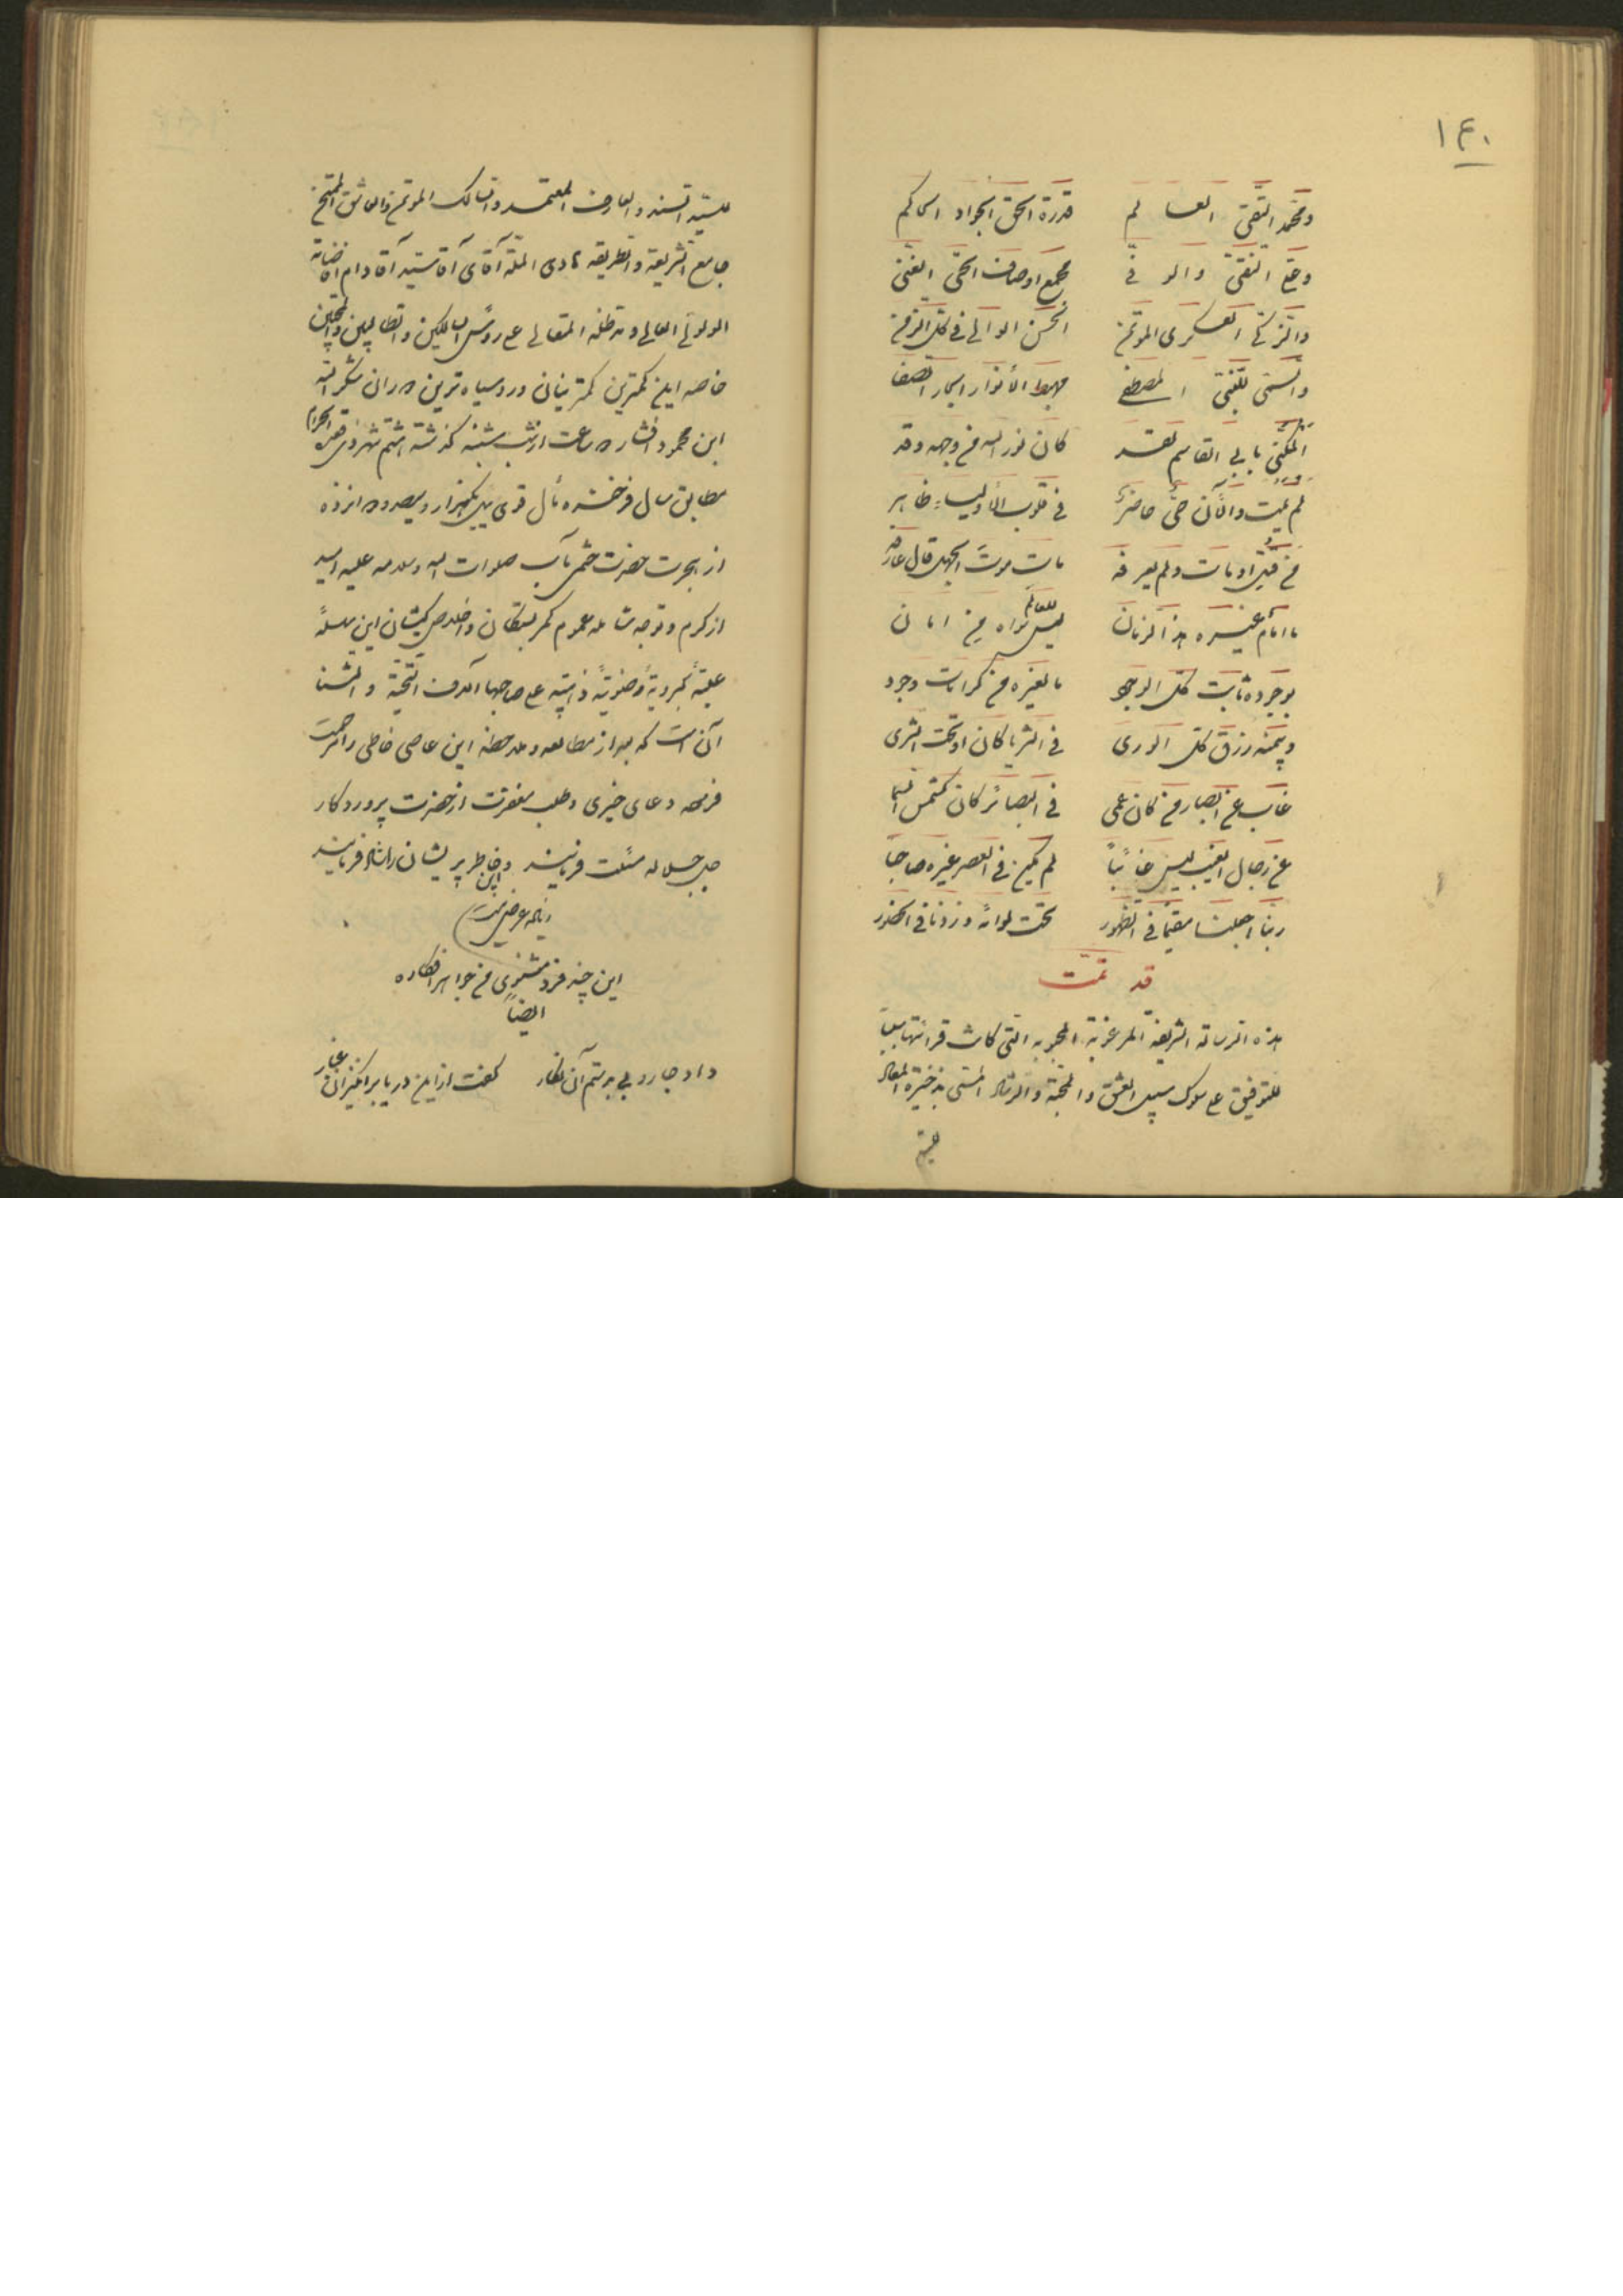 ١٤٠
و محمد التقی العالم قدرة الحق الجواد الحاکم
و علی النقی والو فی مجمع اوصاف الحی الغنی
والزکی العسکری المؤتمن الحسن الوالی فی کل الزمن
والسمی للنبی المصطفی مهبط الأنوار البحار الصفا
المکنی بابی القاسم لقد کان نور الله فی وجهه وقد
لم یمت والآن حی حاضر فی قلوب الأولیاء ظاهر
من قتل او مات ولم یعرفه مات موت الجهل قال عارفه
ما امام غیره هذا الزمان لیس للعالم سواه من امان
بوجوده ثابت کل الوجود ما لغیره من کرامات وجود
وبیمنه رزق کل الوری فی الثریا کان او تحت الثری
غاب عن ابصار من کان عمی فی البصائر کان کشمس السما
عن رجال الغیب لیس غائباً لم یکن فی العصر غیره صاحبا
ربنا اجعلنا مقیماً فی الظهور تحت لوائه وزدنا فی الحضور
قد تمت
هذه الرسالة الشریفة المرغوبة المحبوبة التی کانت قرائتها سبباً
للتوفیق علی سلوک سبیل العشق والمحبة والرشاد المسمی بذخیرة المعاد
للسید
للسید السند والعارف المعتمد والسالک المؤتمن والعاشق الممتحن
جامع الشریعة والطریقه هادی الملة آقای آقا سید آقا دام افاضاته
المولوی العالی و مد ظله المتعالی علی رؤس السالکین والطالبین والمحبین
خاصه این کمترین کمترینان و روسیاه ترین دوران شکرالله
ابن محمود افشار ٥ ساعت از شب شنبه گذشته هشتم شهر ذی قعدة الحرام
مطابق سال فرخنده فال قوی ئیل یکهزار و سیصد و پانزده
از هجرت حضرت ختمی مآب صلوات الله وسلامه علیه امید
از کرم و توجه شامله عموم کمربستگان و اخلاص کیشان این سلسلهٔ
علیّهٔ کبرویهٔ رضویهٔ ذهبیه علی صاحبها آلاف التحیة و الثنا
آن است که بعد از مطالعه و ملاحظه این عاصی خاطی را مرحمت
فرموده دعای خیری و طلب مغفرت از حضرت پروردگار
جل جلاله مسئلت فرمایند و خاطر پریشان این را شاد فرمایند
زیاده عرضی نیست
این چند فرد مثنوی من جواهر افکاره
ایضاً
داد جاروبی بدستم آن نگار گفت از این دریا برانگیزان غبار